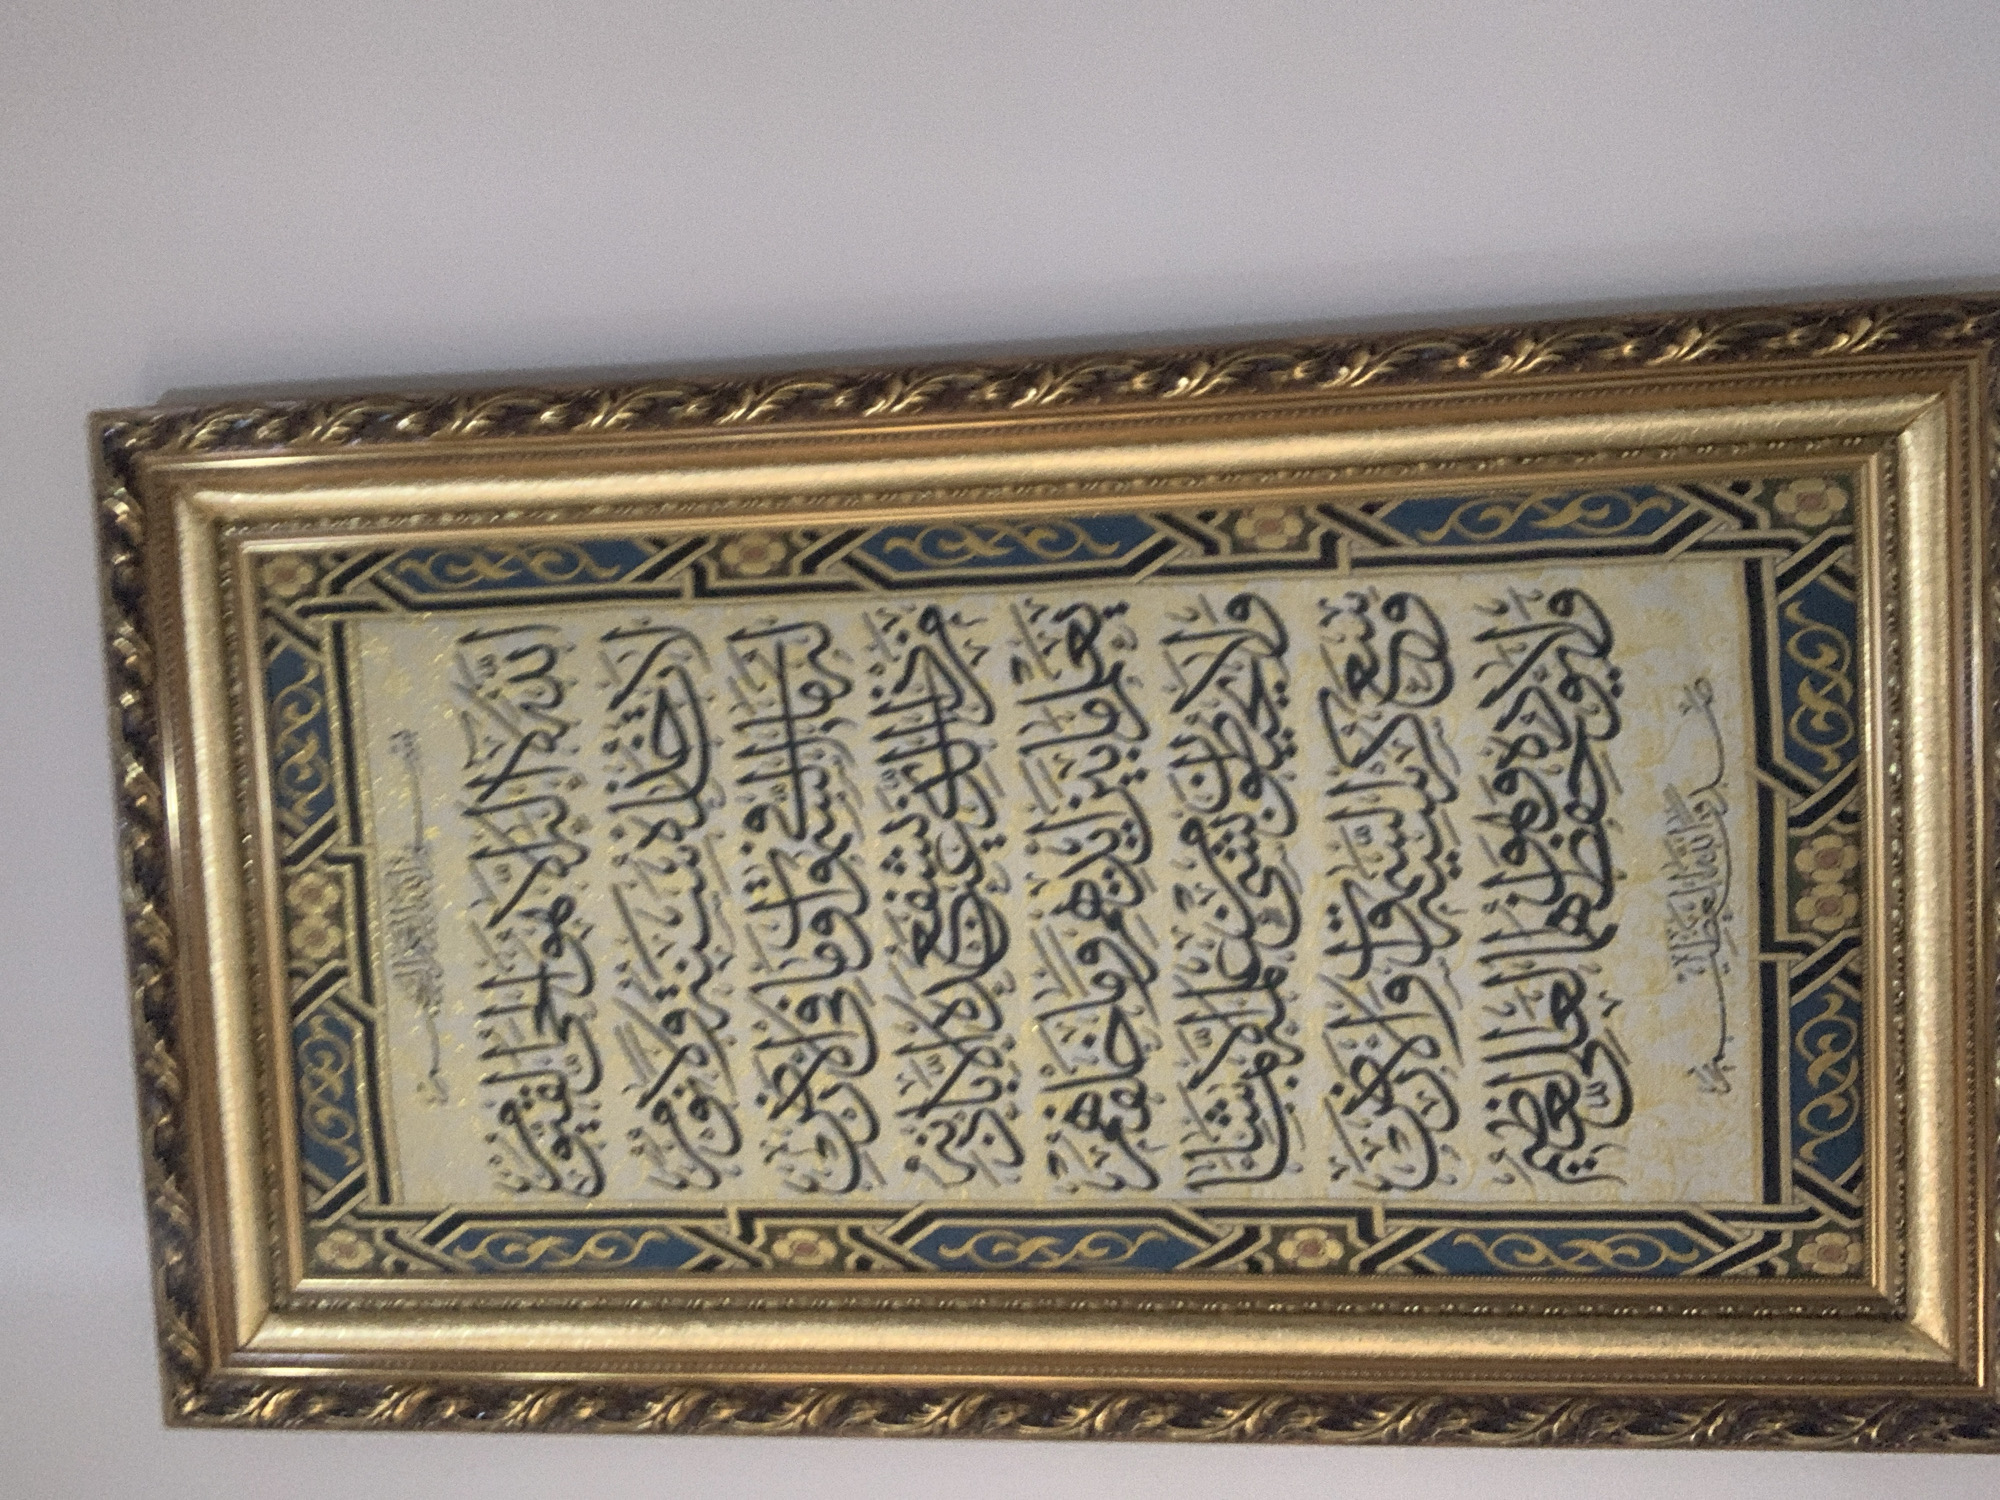 بسم الله الرحمن الرحيم
الله لا اله الا هو الحي القيوم
لا تأخذه سنة ولا نوم
له ما في السموات وما في الارض
من ذا الذي يشفع عنده الا باذنه
يعلم ما بين ايديهم وما خلفهم
ولا يحيطون بشيء من علمه الا بما شاء
وسع كرسيه السموات والارض
ولا يؤده حفظهما وهو العلي العظيم
صدق الله